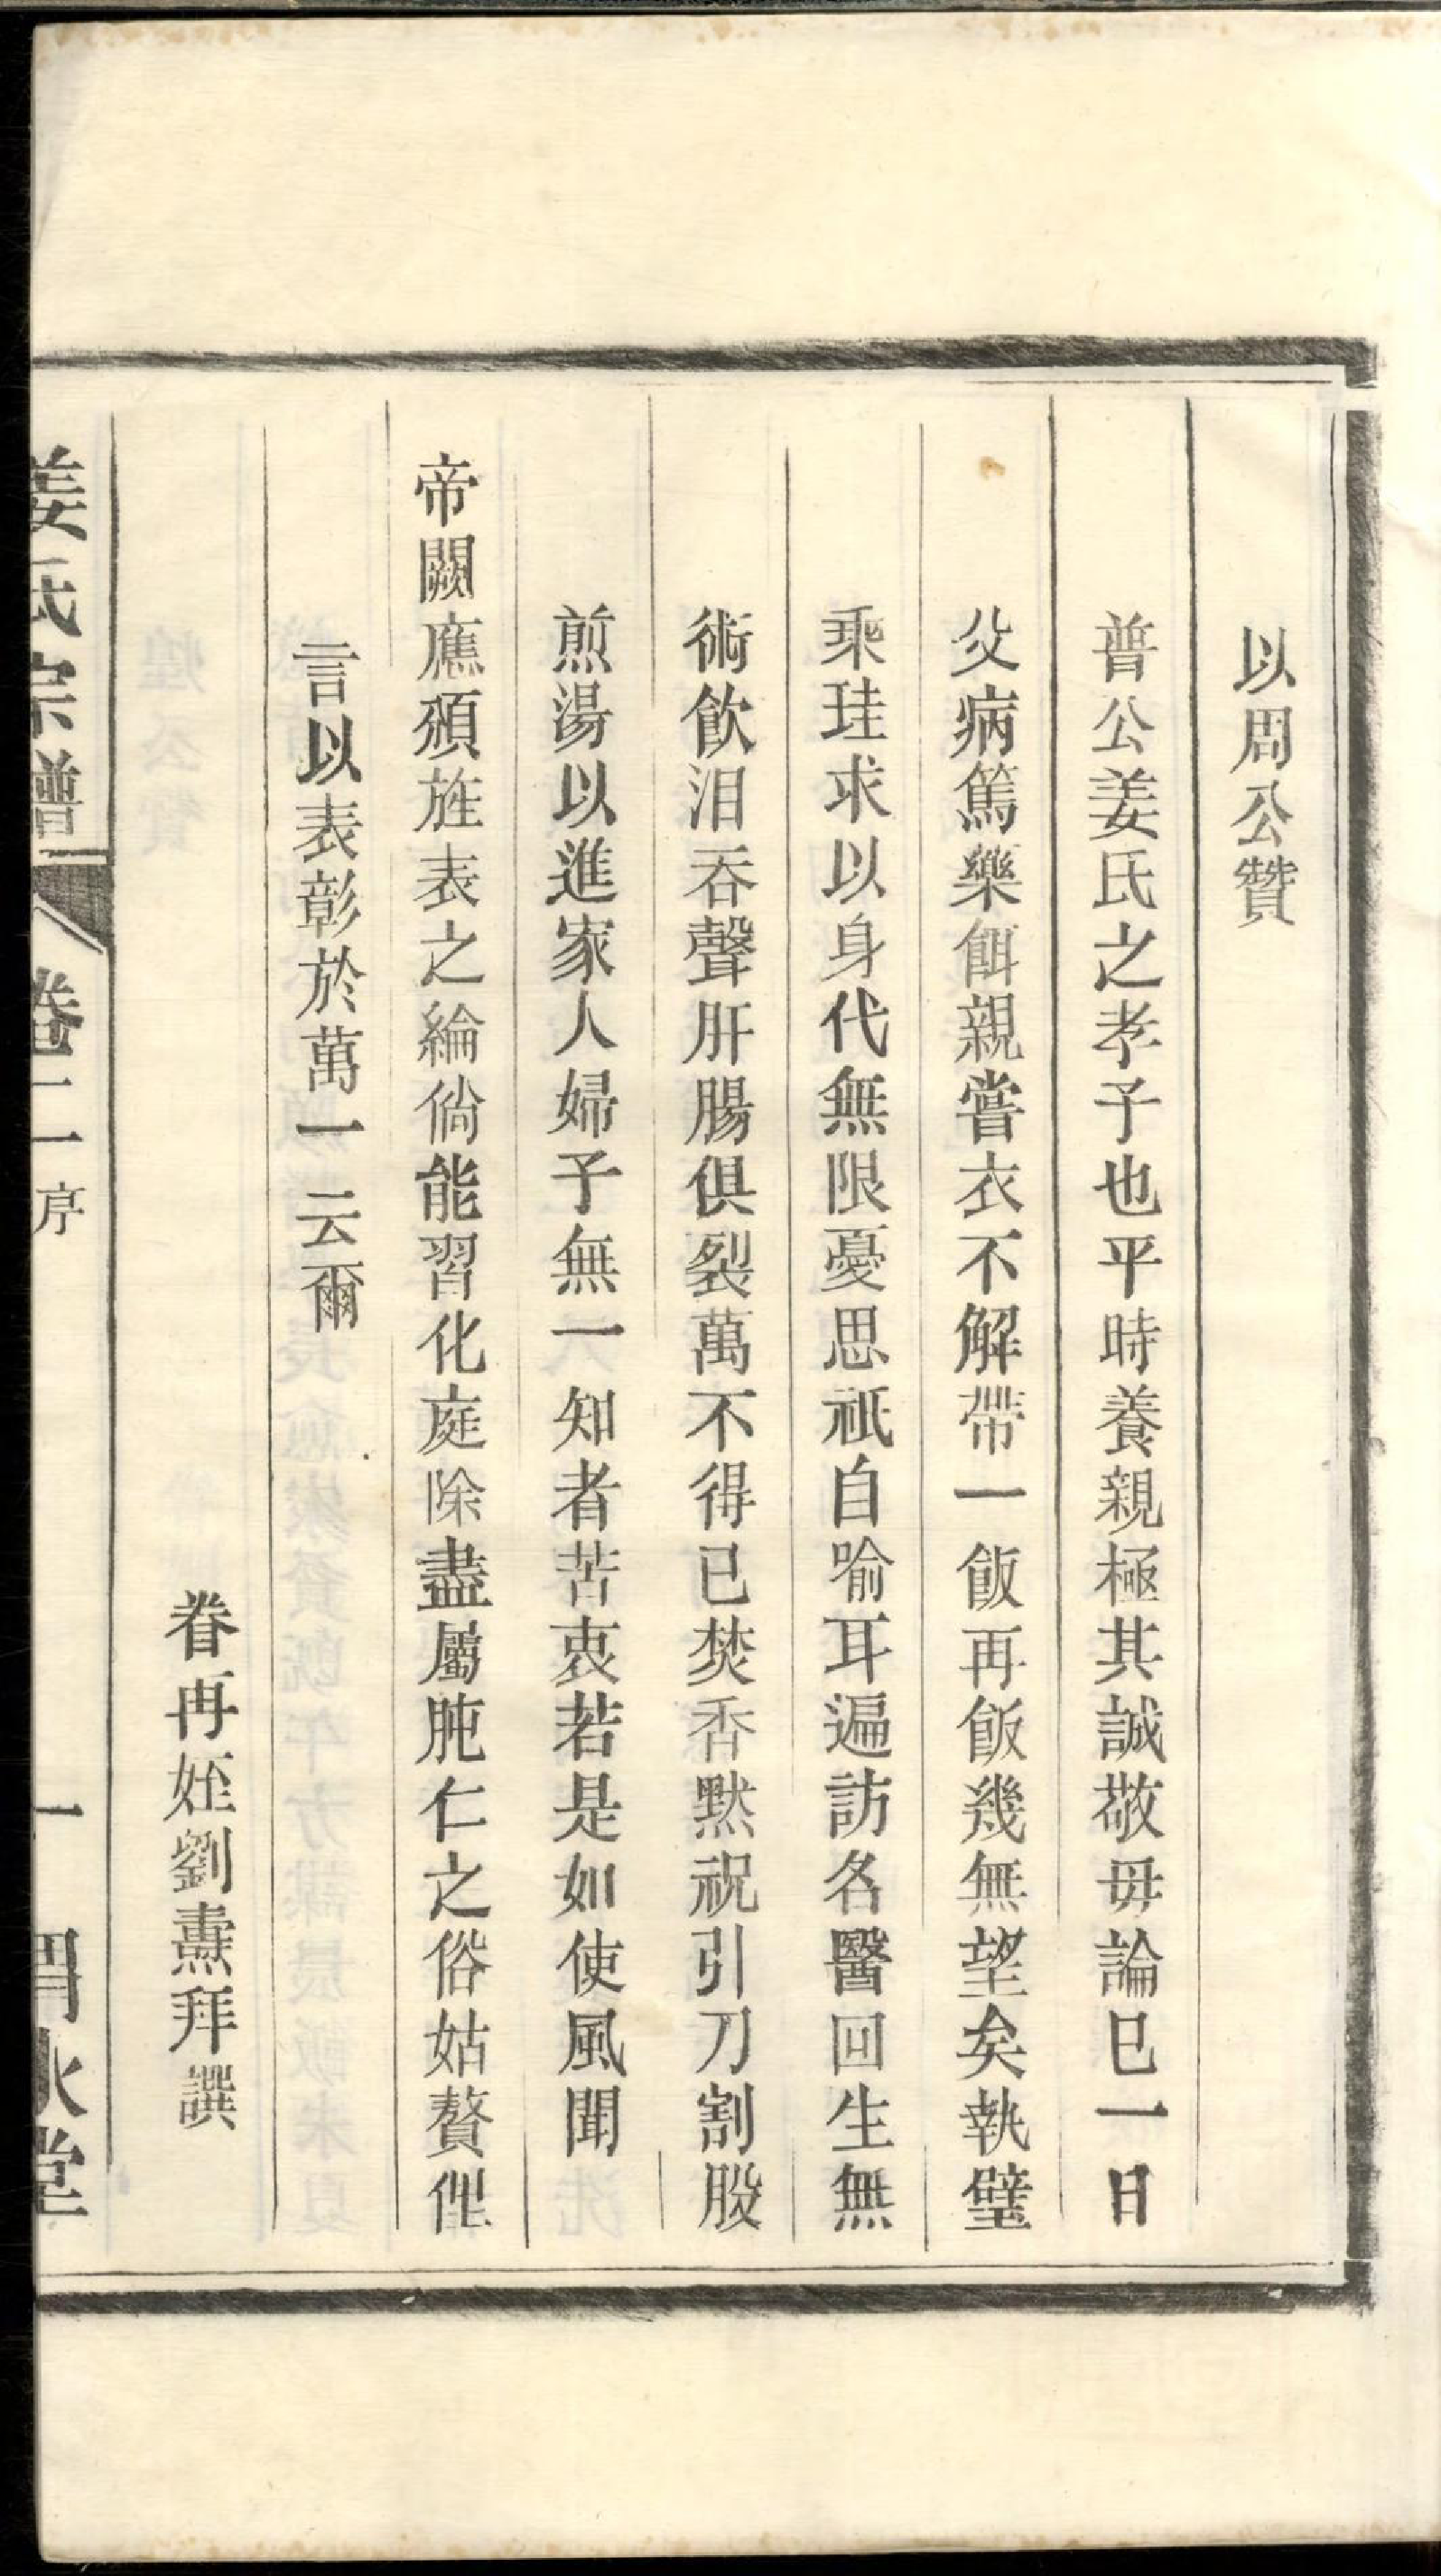 以周公贊
普公姜氏之孝子也平時養親極其誠敬毋論已一日
父病篤藥餌親嘗衣不解帶一飯再飯幾無望矣執璧
乘珪求以身代無限憂思祇自喻耳遍訪名醫回生無
術飲泪吞聲肝腸俱裂萬不得已焚香默祝引刀割股
煎湯以進家人婦子無一知者苦衷若是如使風聞
帝闕應頒旌表之綸倘能習化庭除盡屬肫仁之俗姑贅俚
言以表彰於萬一云爾
眷再姪劉燾拜譔
姜氏宗譜 卷二 序 一 渭水堂